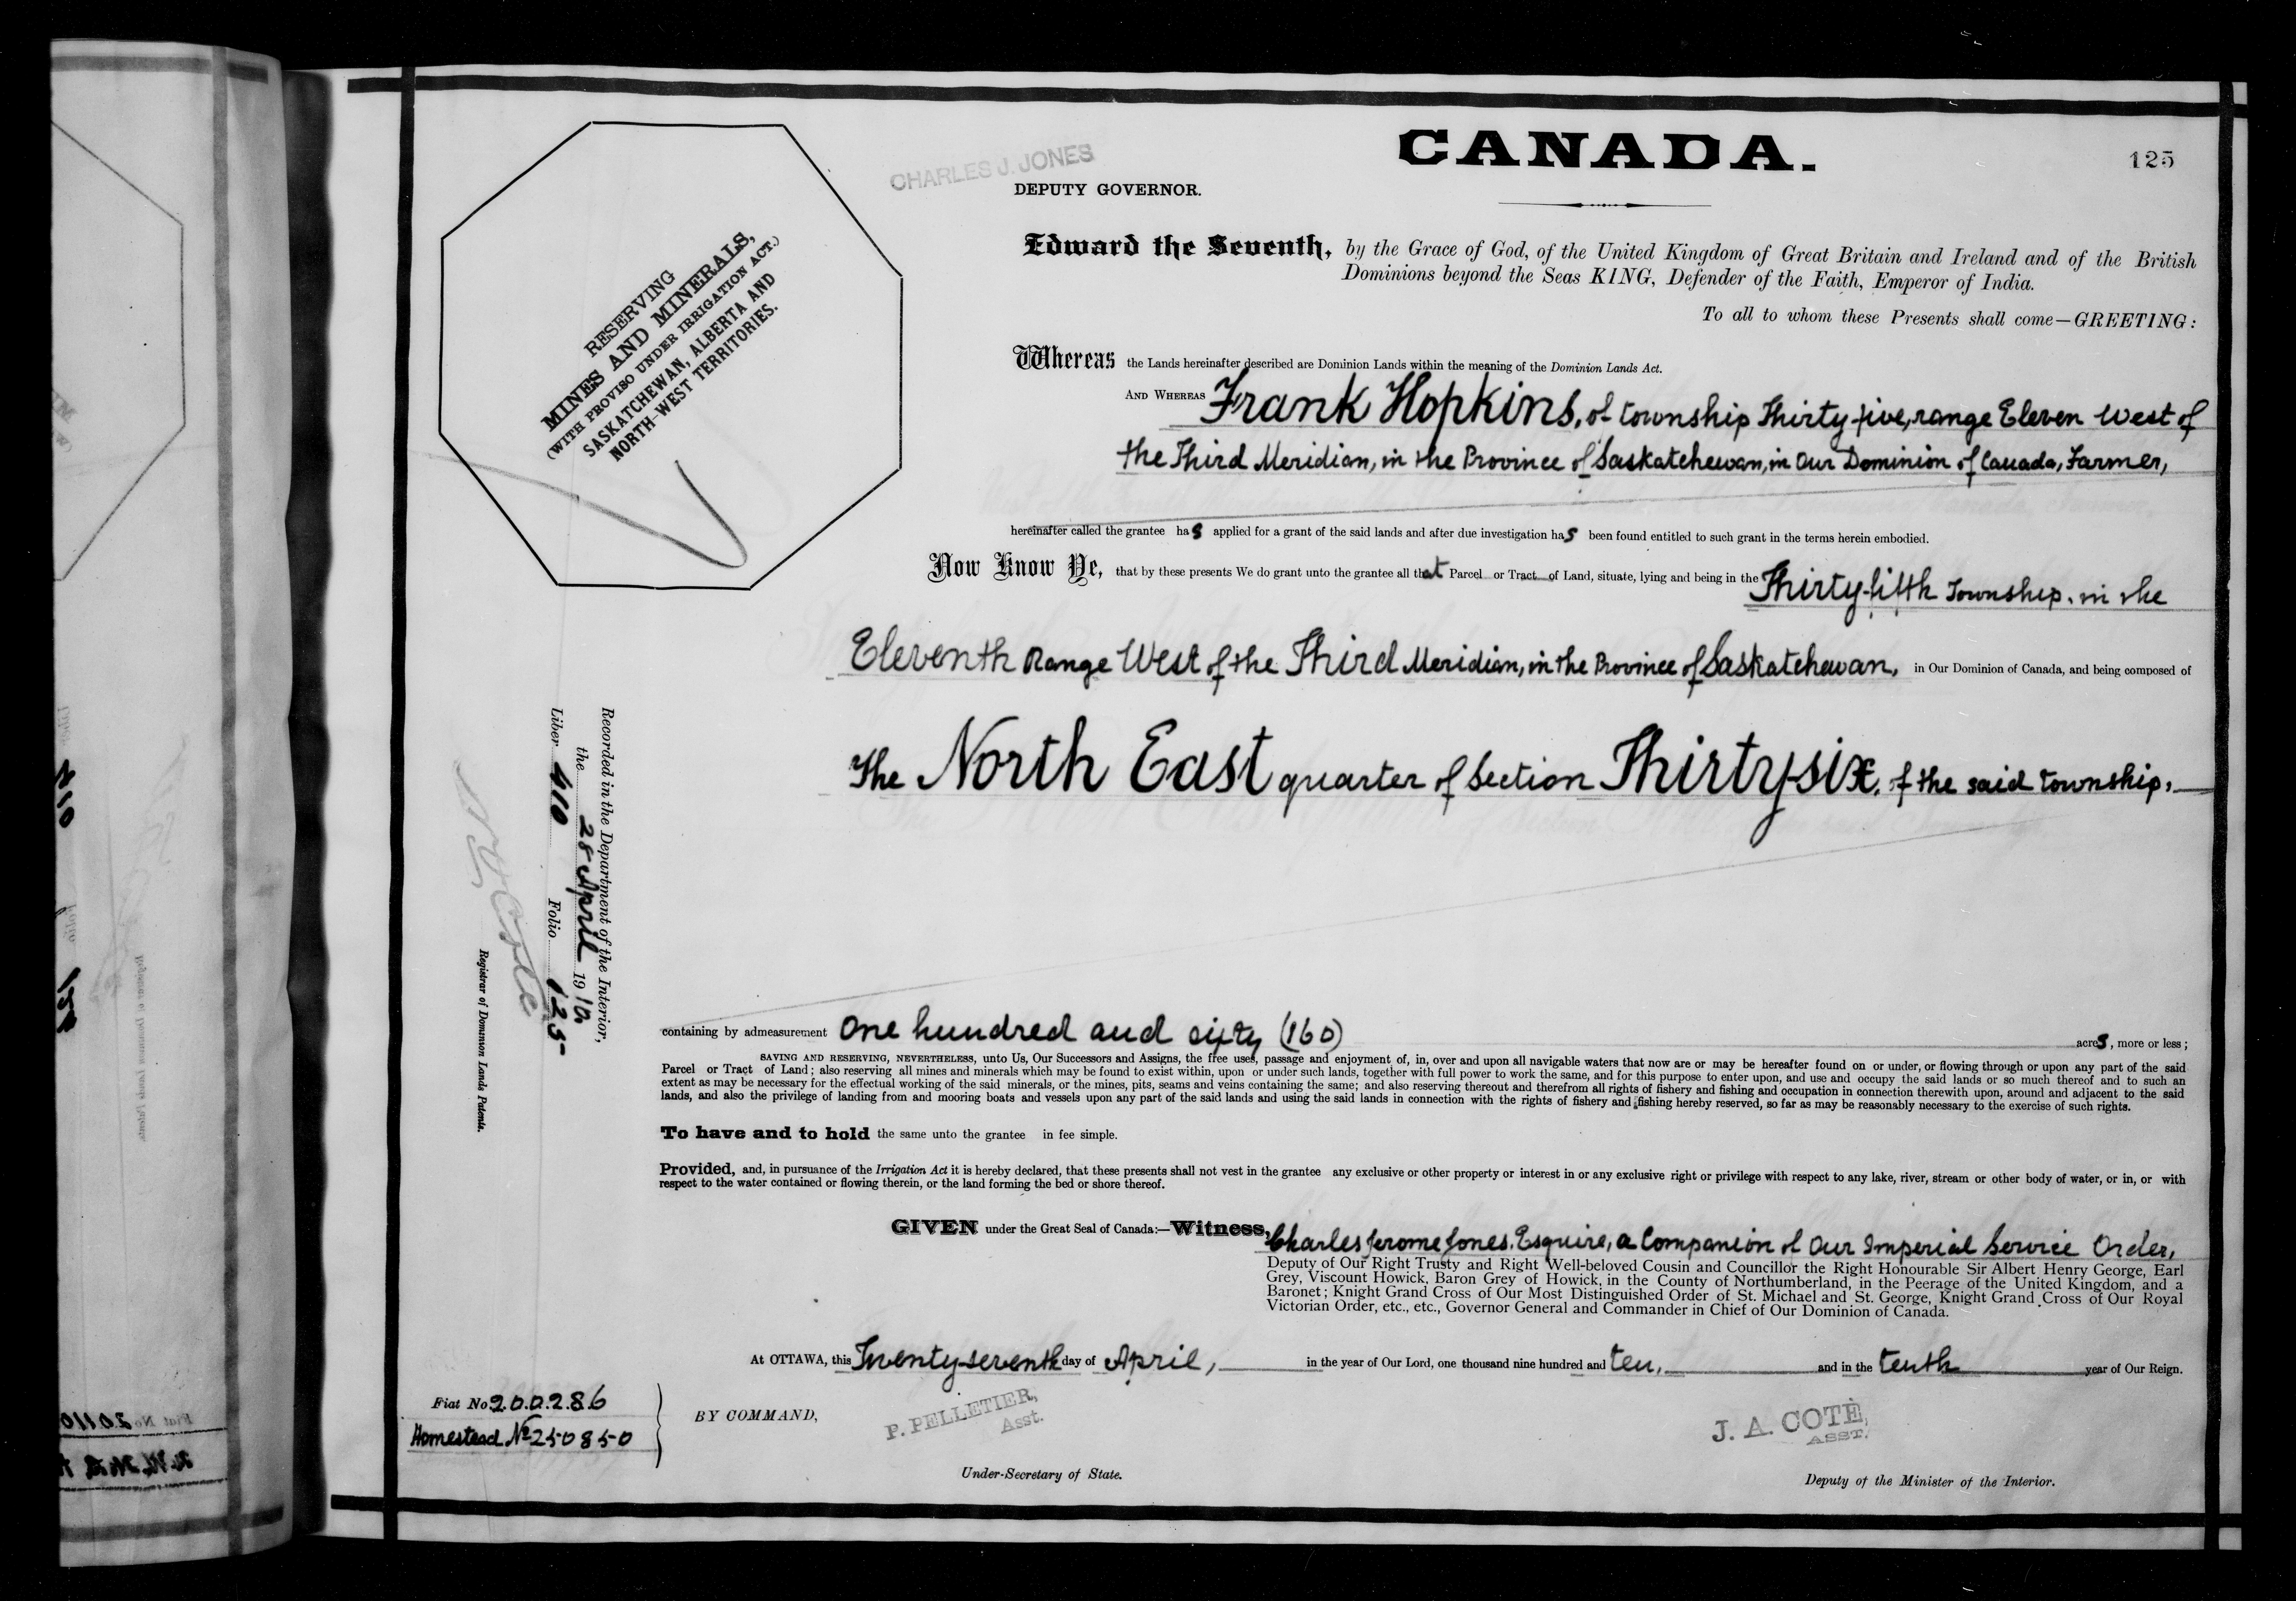 CANADA.
125
CHARLES J. JONES
DEPUTY GOVERNOR.
RESERVING
MINES AND MINERALS,
(WITH PROVISO UNDER IRRIGATION ACT.)
SASKATCHEWAN, ALBERTA AND
NORTH-WEST TERRITORIES.
Edward the Seventh, by the Grace of God, of the United Kingdom of Great Britain and Ireland and of the British
Dominions beyond the Seas KING, Defender of the Faith, Emperor of India.
To all to whom these Presents shall come—GREETING:
Whereas the Lands hereinafter described are Dominion Lands within the meaning of the Dominion Lands Act.
AND WHEREAS Frank Hopkins, of township Thirty five, range Eleven West of
the Third Meridian, in the Province of Saskatchewan, in Our Dominion of Canada, Farmer,
hereinafter called the grantee has applied for a grant of the said lands and after due investigation has been found entitled to such grant in the terms herein embodied.
Now Know Ye, that by these presents We do grant unto the grantee all that Parcel or Tract of Land, situate, lying and being in the Thirty-fifth Township, in the
Eleventh Range West of the Third Meridian, in the Province of Saskatchewan, in Our Dominion of Canada, and being composed of
The North East quarter of Section Thirty six, of the said township,
containing by admeasurement One hundred and sixty (160) acres, more or less;
SAVING AND RESERVING, NEVERTHELESS, unto Us, Our Successors and Assigns, the free uses, passage and enjoyment of, in, over and upon all navigable waters that now are or may be hereafter found on or under, or flowing through or upon any part of the said
Parcel or Tract of Land; also reserving all mines and minerals which may be found to exist within, upon or under such lands, together with full power to work the same, and for this purpose to enter upon, and use and occupy the said lands or so much thereof and to such an
extent as may be necessary for the effectual working of the said minerals, or the mines, pits, seams and veins containing the same; and also reserving thereout and therefrom all rights of fishery and fishing and occupation in connection therewith upon, around and adjacent to the said
lands, and also the privilege of landing from and mooring boats and vessels upon any part of the said lands and using the said lands in connection with the rights of fishery and fishing hereby reserved, so far as may be reasonably necessary to the exercise of such rights.
To have and to hold the same unto the grantee in fee simple.
Provided, and, in pursuance of the Irrigation Act it is hereby declared, that these presents shall not vest in the grantee any exclusive or other property or interest in or any exclusive right or privilege with respect to any lake, river, stream or other body of water, or in, or with
respect to the water contained or flowing therein, or the land forming the bed or shore thereof.
GIVEN under the Great Seal of Canada:—Witness, Charles Jerome Jones, Esquire, a Companion of Our Imperial Service Order,
Deputy of Our Right Trusty and Right Well-beloved Cousin and Councillor the Right Honourable Sir Albert Henry George, Earl
Grey, Viscount Howick, Baron Grey of Howick, in the County of Northumberland, in the Peerage of the United Kingdom, and a
Baronet; Knight Grand Cross of Our Most Distinguished Order of St. Michael and St. George, Knight Grand Cross of Our Royal
Victorian Order, etc., etc., Governor General and Commander in Chief of Our Dominion of Canada.
At OTTAWA, this Twenty-seventh day of April, in the year of Our Lord, one thousand nine hundred and ten, and in the tenth year of Our Reign.
Fiat No 200286
Homestead No 250850
BY COMMAND,
P. PELLETIER,
Asst.
Under-Secretary of State.
J. A. COTE,
ASST.
Deputy of the Minister of the Interior.
Recorded in the Department of the Interior,
the 28 April 1910
Liber 410 Folio 125
N O Coté
Registrar of Dominion Lands Patents.